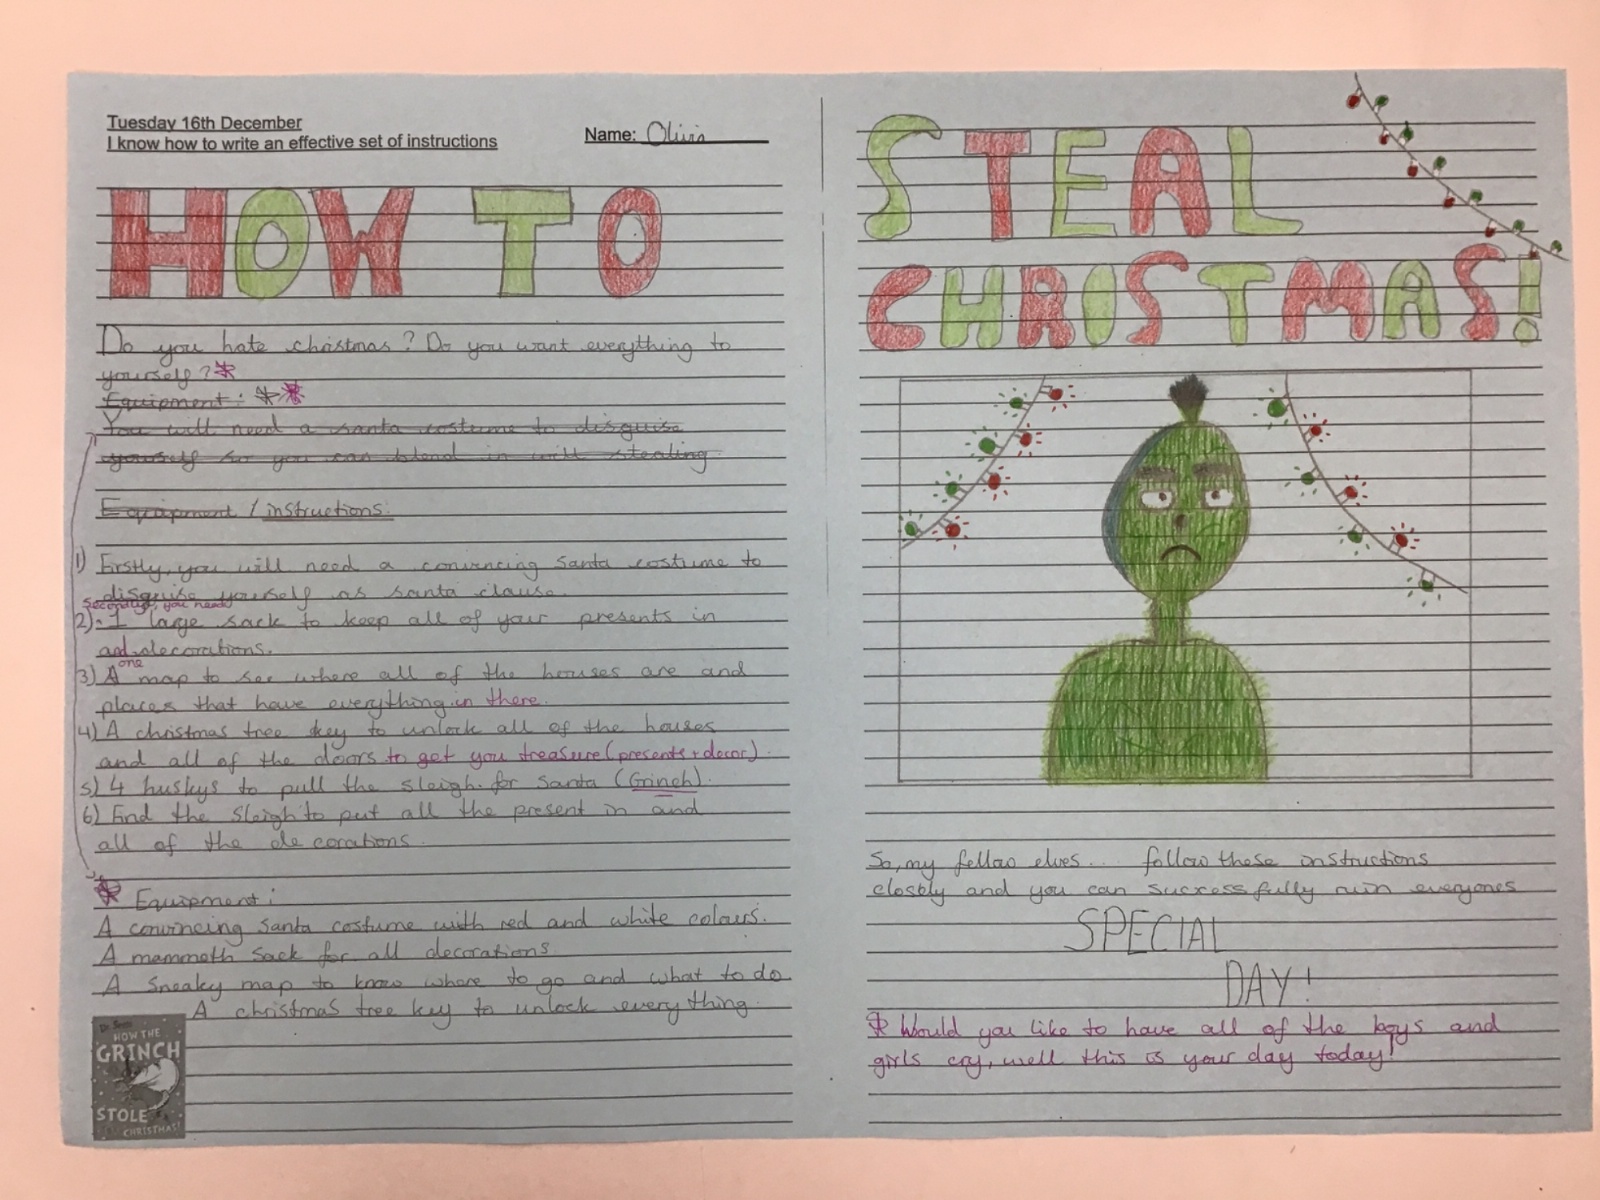 Tuesday 16th December
I know how to write an effective set of instructions
Name: Olivia
HOW TO
Do you hate christmas? Do you want everything to
yourself? *
Equipment: * *
You will need a santa costume to disguise
yourself so you can blend in will stealing
Equipment / instructions:
1) Firstly, you will need a convincing Santa costume to
disguise yourself as santa clause.
Secondly, you need
2) 1 large sack to keep all of your presents in
and decorations.
one
3) A map to see where all of the houses are and
places that have everything in there.
4) A christmas tree key to unlock all of the houses
and all of the doors to get you treasure (presents + decor).
5) 4 huskys to pull the sleigh for Santa (Grinch).
6) Find the sleigh to put all the present in and
all of the decorations.
* Equipment:
A convincing Santa costume with red and white colours.
A mammoth sack for all decorations
A sneaky map to know where to go and what to do
A christmas tree key to unlock everything.
Dr. Seuss
HOW THE
GRINCH
STOLE
CHRISTMAS!
STEAL
CHRISTMAS!
So, my fellow elves.... follow these instructions
closely and you can sucxessfully ruin everyones
SPECIAL
DAY!
* Would you like to have all of the boys and
girls cry, well this is your day today!